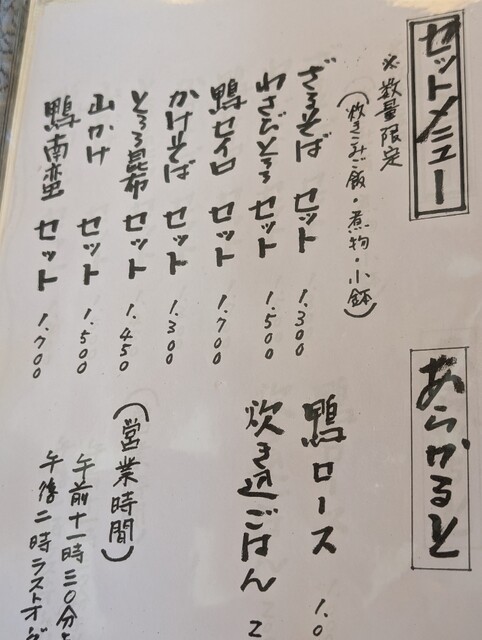 セットメニュー
※数量限定
(炊きこみご飯・煮物・小鉢)
ざるそば セット 1.300
わさびとろろ セット 1.500
鴨セイロ セット 1.700
かけそば セット 1.300
とろろ昆布 セット 1.450
山かけ セット 1.500
鴨南蛮 セット 1.700
あらかると
鴨ロース 1.0
炊き込ごはん 2
(営業時間)
午前十一時三〇分よ
午後二時ラストオーダ